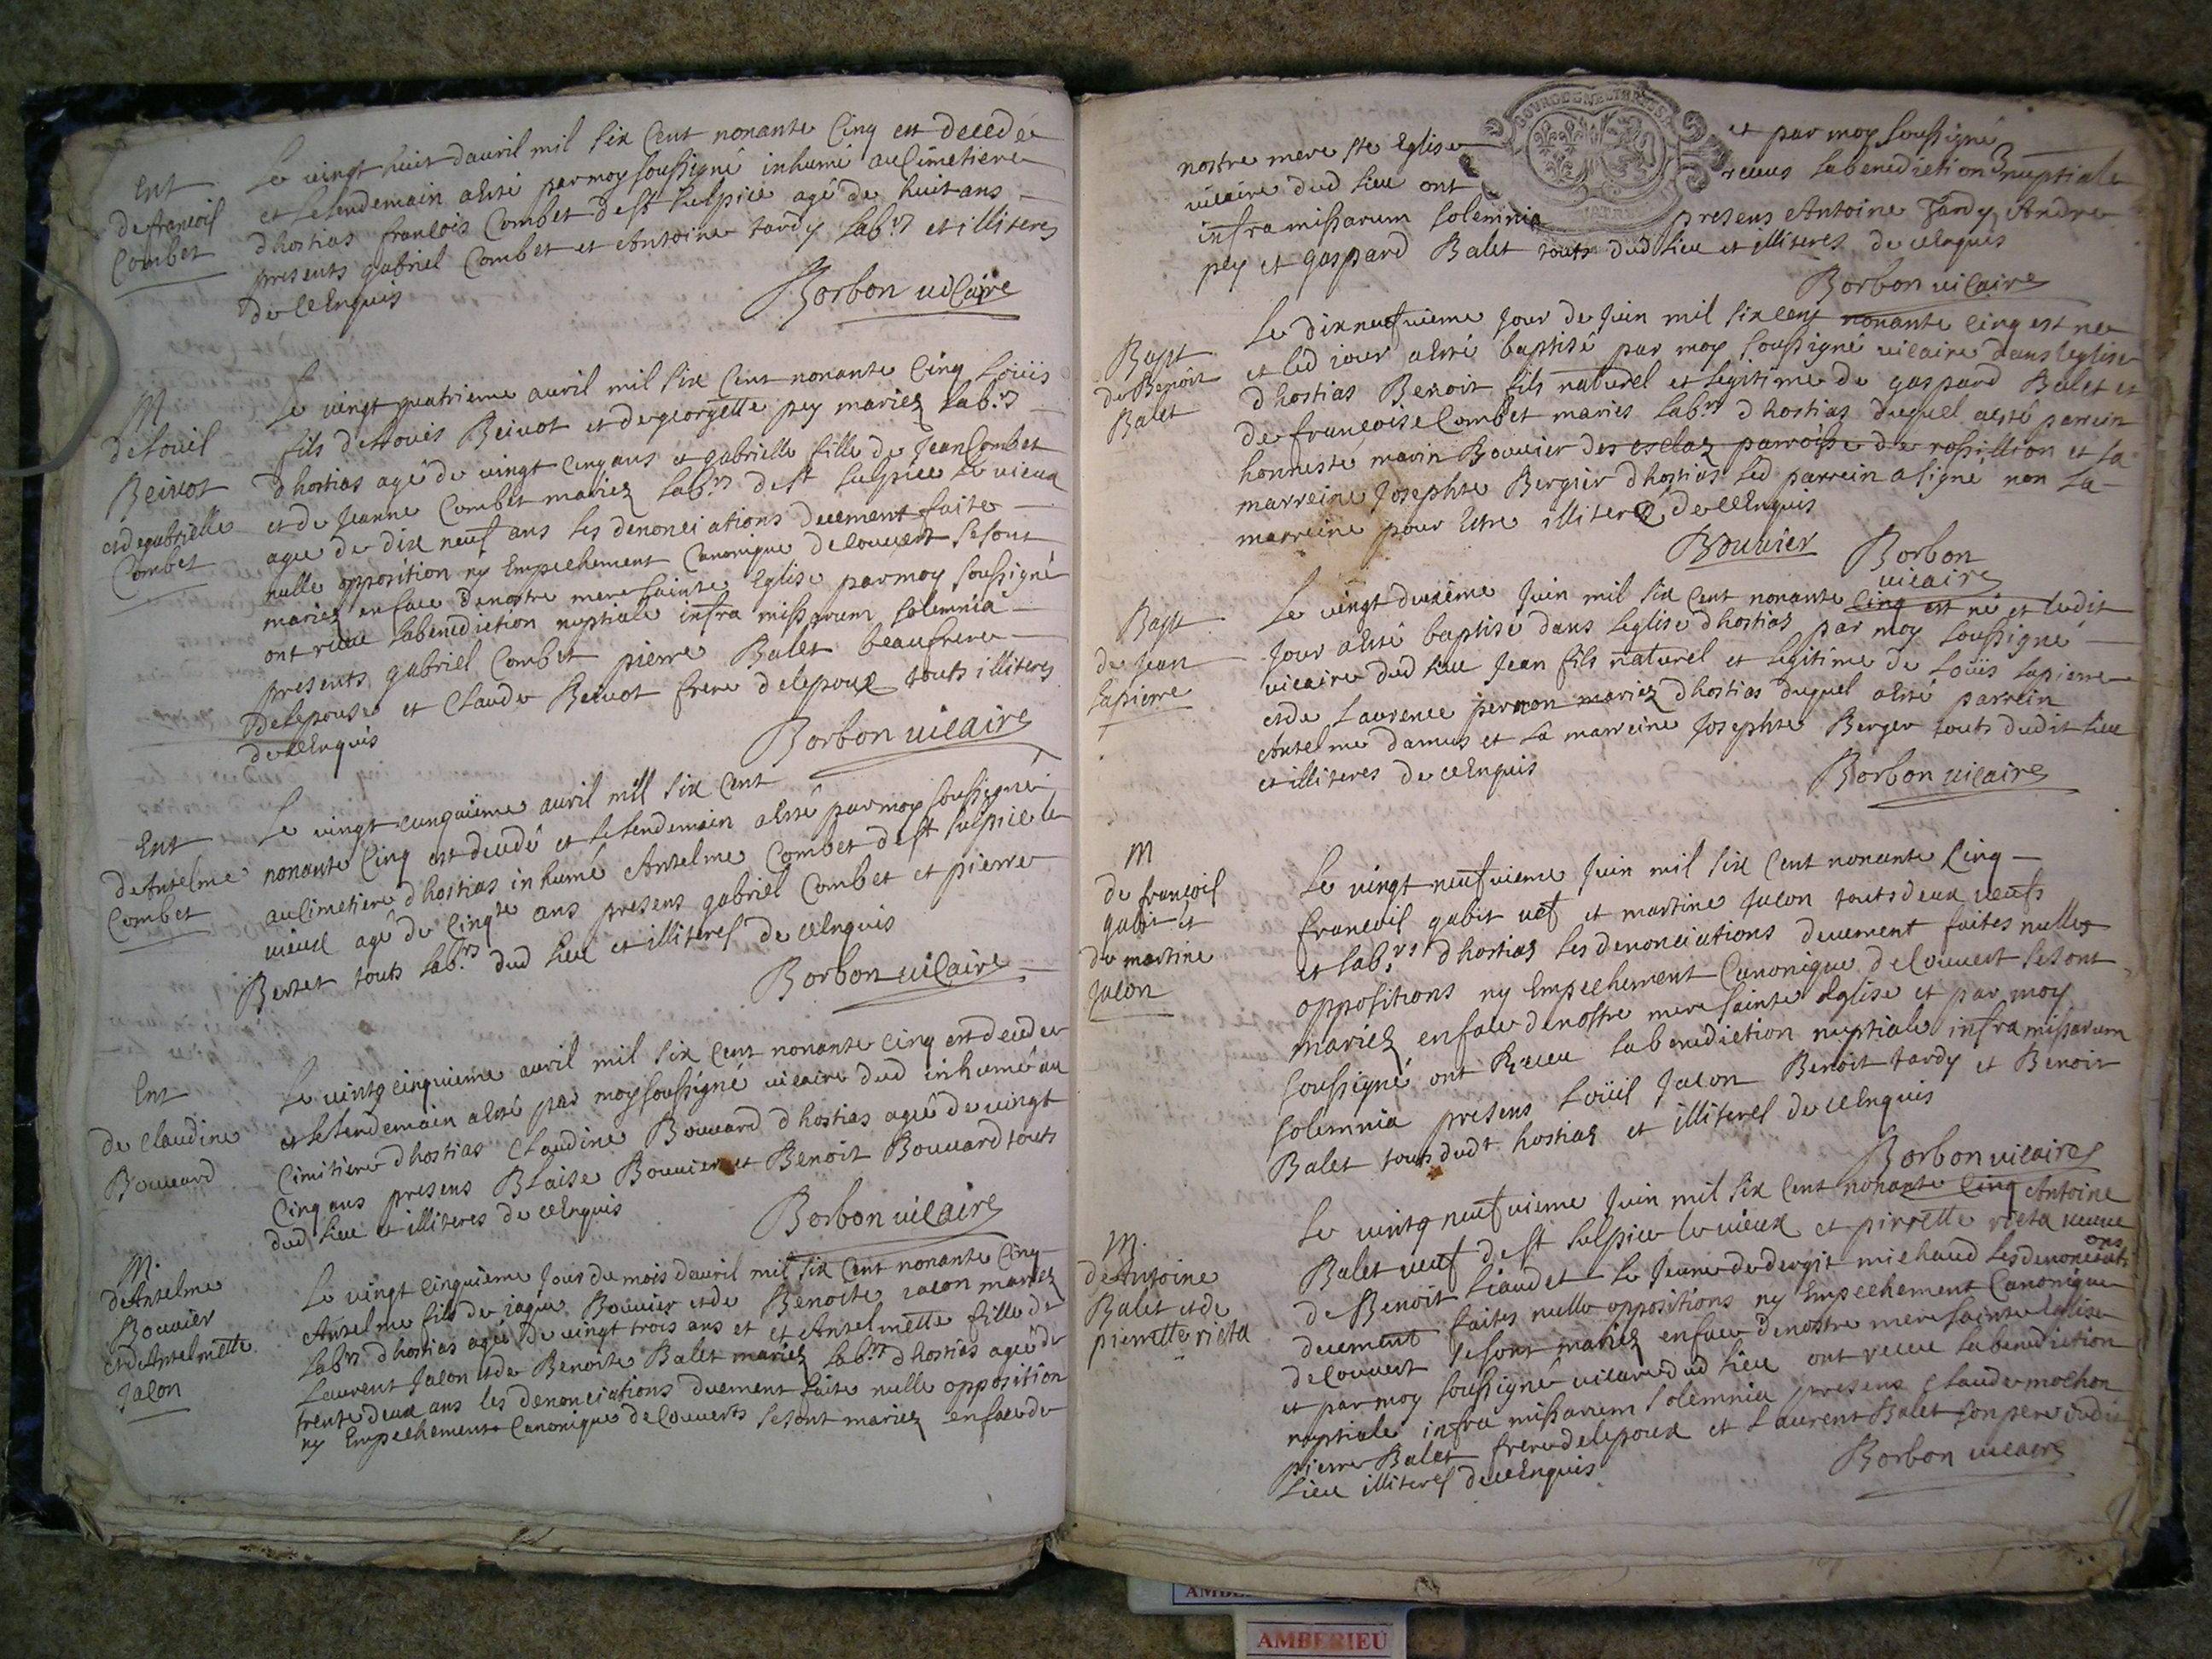 Ent
de francois
Combet
Le vingt huit dauril mil six Cent nonante Cinq est decedé
et le lendemain a esté par moy soussigné inhumé au Cimetiere
dhostias francois Combet de st sulpice agé de huit ans
presents gabriel Combet et Antoine tardy lab.rs et illiteres
de ce Enquis
Borbon uicaire
M
de Louis
Beiuot
et de gabrielle
Combet
Le vingt quatrieme auril mil six Cent nonante Cinq Louis
fils de Louis Beiuot et de georgette pey mariez lab.rs
dhostias agé de vingt Cinq ans et gabrielle fille de Jean Combet
et de Jeanne Combet mariez lab.rs de st sulpice Le vieux
agee de dix neuf ans les denonciations duement faite
nulle opposition ny Empechement Canonique decouuert se sont
mariez en face de nostre mere sainte Eglise par moy soussigné
ont receu la benediction nuptiale infra missarum solemnia
presents gabriel Combet pierre Balet beaufrere
de lepouse et Claude Beiuot frere de lepoux touts illiteres
de ce Enquis
Borbon uicaire
Ent
de Antelme
Combet
Le vingt cinquieme auril mil six Cent
nonante Cinq est decedé et le lendemain a esté par moy soussigné
au Cimetiere dhostias inhumé Antelme Combet de st sulpice le
vieux agé de Cinq.te ans presens gabriel Combet et pierre
Bertet touts lab.rs dud lieu et illiteres de ce Enquis
Borbon uicaire
Ent
de Claudine
Bouuard
Le vintg cinquieme auril mil six Cent nonante cinq est decedee
et le lendemain a esté par moy soussigné uicaire dud inhumé au
Cimitiere dhostias Claudine Bouuard dhostias agée de vingt
Cinq ans presens Blaise Bouuier et Benoit Bouuard touts
dud lieu et illiteres de ce Enquis
Borbon uicaire
M.
de Antelme
Bouuier
et de Antelmette
Jacon
Le vingt Cinquieme Jour du mois dauril mil six Cent nonante Cinq
Antelme fils de jaque Bouuier et de Benoite jacon mariez
lab.rs dhostias agé de vingt trois ans et et Antelmette fille de
Laurent Jacon et de Benoite Balet mariez lab.rs dhostias agée de
trente deux ans les denonciations duement faite nulle opposition
ny Empechement Canonique decouuerts se sont mariez en face de
nostre mere ste Eglise et par moy soussigné
uicaire dud lieu ont receus la benediction nuptiale
infra missarum solemnia presens Antoine Tardy Andre
pey et gaspard Balet touts dud lieu et illiteres de ce Enquis
Borbon uicaire
Bapt
de Benoit
Balet
Le dix neufuieme Jour de Juin mil six cent nonante cinq est ne
et led jour a esté baptisé par moy soussigné uicaire dans leglise
dhostias Benoit fils naturel et legitime de gaspard Balet et
de francoise Combet mariés lab.rs dhostias duquel a esté parrin
honneste marin Bouuier des esclaz parroisse de rossillion et la
marreine Josephte Bergier dhostias led parrein a signé non la
marreine pour Estre illitere de ce Enquis
Bouuier Borbon
uicaire
Bapt
de Jean
Lapierre
Le vingt duxième Juin mil six Cent nonante Cinq est né et ledit
Jour a esté baptisé dans leglise dhostias par moy soussigné
uicaire dud lieu Jean fils naturel et legitime de Louis Lapierre
et de Laurence pernon mariez dhostias duquel a esté parrein
Antelme damus et la marreine Josephte Berger touts dudit lieu
et illiteres de ce Enquis
Borbon uicaire
M
de francois
gabit et
de martine
Jacon
Le vingt neufuieme Juin mil six Cent nonante Cinq
francois gabit uef et martine Jacon touts deux veufs
et lab.rs dhostias les denonciations deuement faites nulles
oppositions ny Empechement Canonique decouuert se sont
mariez en face de nostre mere sainte Eglise et par moy
soussigné ont Receu la benediction nuptiale infra missarum
solemnia presens Louis Jacon Benoit tardy et Benoit
Balet tous dudt hostiaz et illiteres de ce Enquis
Borbon uicaire
M.
de Antoine
Balet et de
pierrette rieta
Le vintg neufuieme Juin mil six Cent nonante Cinq Antoine
Balet veuf de st sulpice le vieux et pirrette rieta veuue
de Benoit Liaudet le Jeune de michaud les denonciations
deuement faites nulle oppositions ny Empechement Canonique
decouuert se sont mariez en face de nostre mere sainte Eglise
et par moy soussigné uicaire dud lieu ont receu la benediction
nuptiale infra missarum solemnia presens Claude mochon
pierre Balet frere de lepoux et Laurent Balet son pere dudit
Lieu illiteres de ce Enquis
Borbon uicaire
AMBERIEU